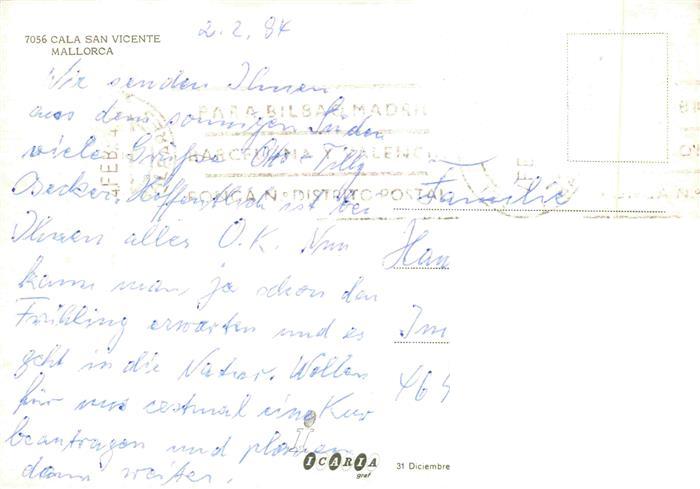 7056 CALA SAN VICENTE
MALLORCA
2. 2. 84
Wir senden Ihnen
aus dem sonnigen Süden
viele Grüße Otto + Tilly
Becker. Hoffentlich ist bei
Ihnen alles O.K. Nun
kann man ja schon den
Frühling erwarten und es
geht in die Natur. Wollen
für uns erstmal eine Kur
beantragen und planen
dann weiter.
PARA BILBAO MADRID
BARCELONA Y VALENCI
PONGA Nº DISTRITO POSTAL
FEB.
Familie
Hau
Im
46
ICARIA
graf
31 Diciembre